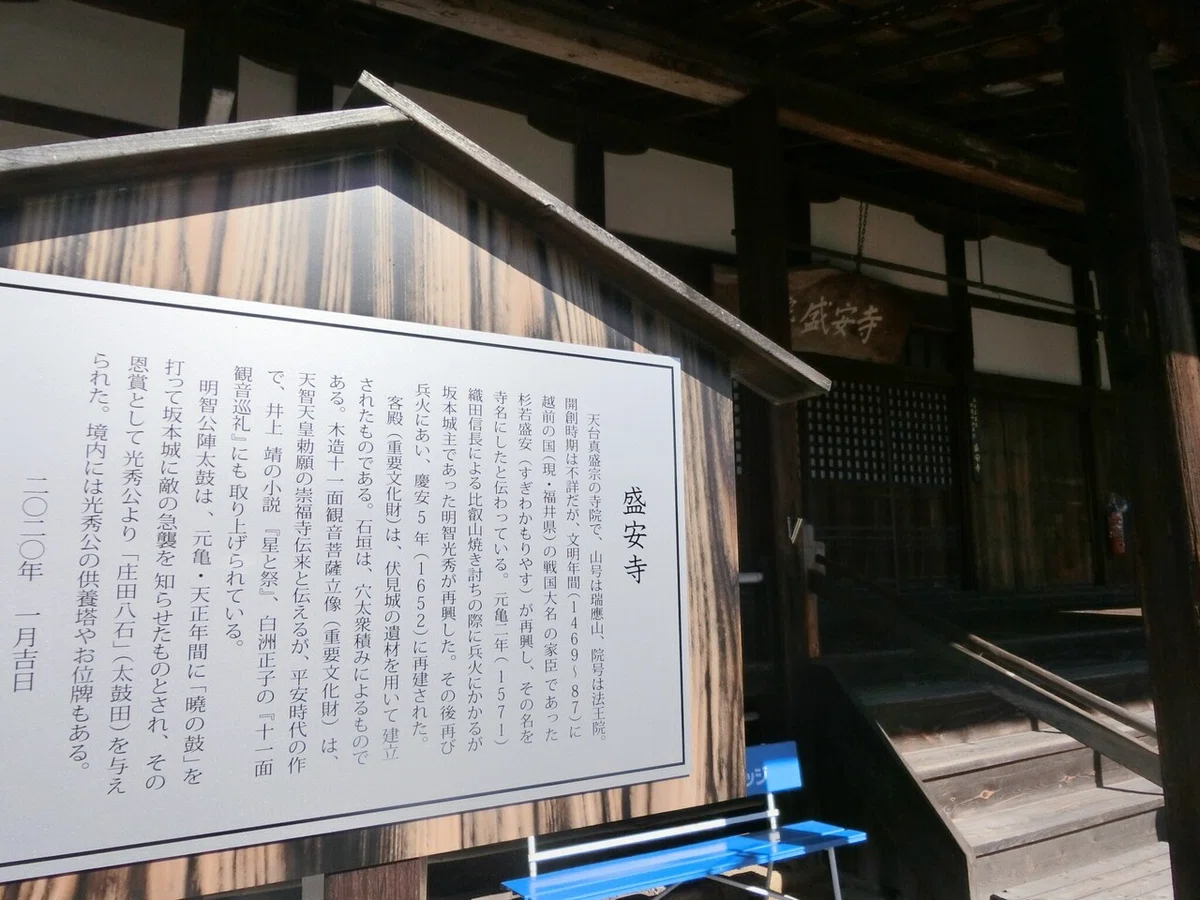 盛安寺
天台真盛宗の寺院で、山号は瑞應山、院号は法王院。
開創時期は不詳だが、文明年間(1469～87)に
越前の国(現・福井県)の戦国大名の家臣であった
杉若盛安(すぎわかもりやす)が再興し、その名を
寺名にしたと伝わっている。元亀二年(1571)
織田信長による比叡山焼き討ちの際に兵火にかかるが
坂本城主であった明智光秀が再興した。その後再び
兵火にあい、慶安5年(1652)に再建された。
客殿(重要文化財)は、伏見城の遺材を用いて建立
されたものである。石垣は、穴太衆積みによるもので
ある。木造十一面観音菩薩立像(重要文化財)は、
天智天皇勅願の崇福寺伝来と伝えるが、平安時代の作
で、井上 靖の小説『星と祭』、白洲正子の『十一面
観音巡礼』にも取り上げられている。
明智公陣太鼓は、元亀・天正年間に「暁の鼓」を
打って坂本城に敵の急襲を知らせたものとされ、その
恩賞として光秀公より「庄田八石」(太鼓田)を与え
られた。境内には光秀公の供養塔やお位牌もある。
二〇二〇年 一月吉日
盛安寺
ッジ